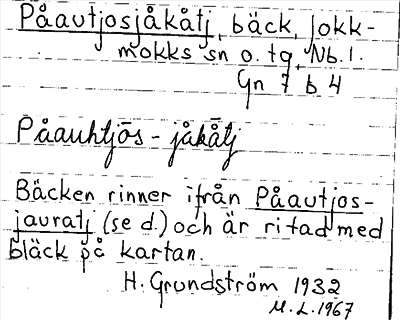 Påautjosjåkåtj, bäck, Jokk-
mokks sn o. tg, Nb. l.
Gn 7 b 4
Påauhtjōs-jåkåtj
Bäcken rinner ifrån Påautjos-
jauratj (se d.) och är ritad med
bläck på kartan.
H. Grundström 1932
M. L. 1967